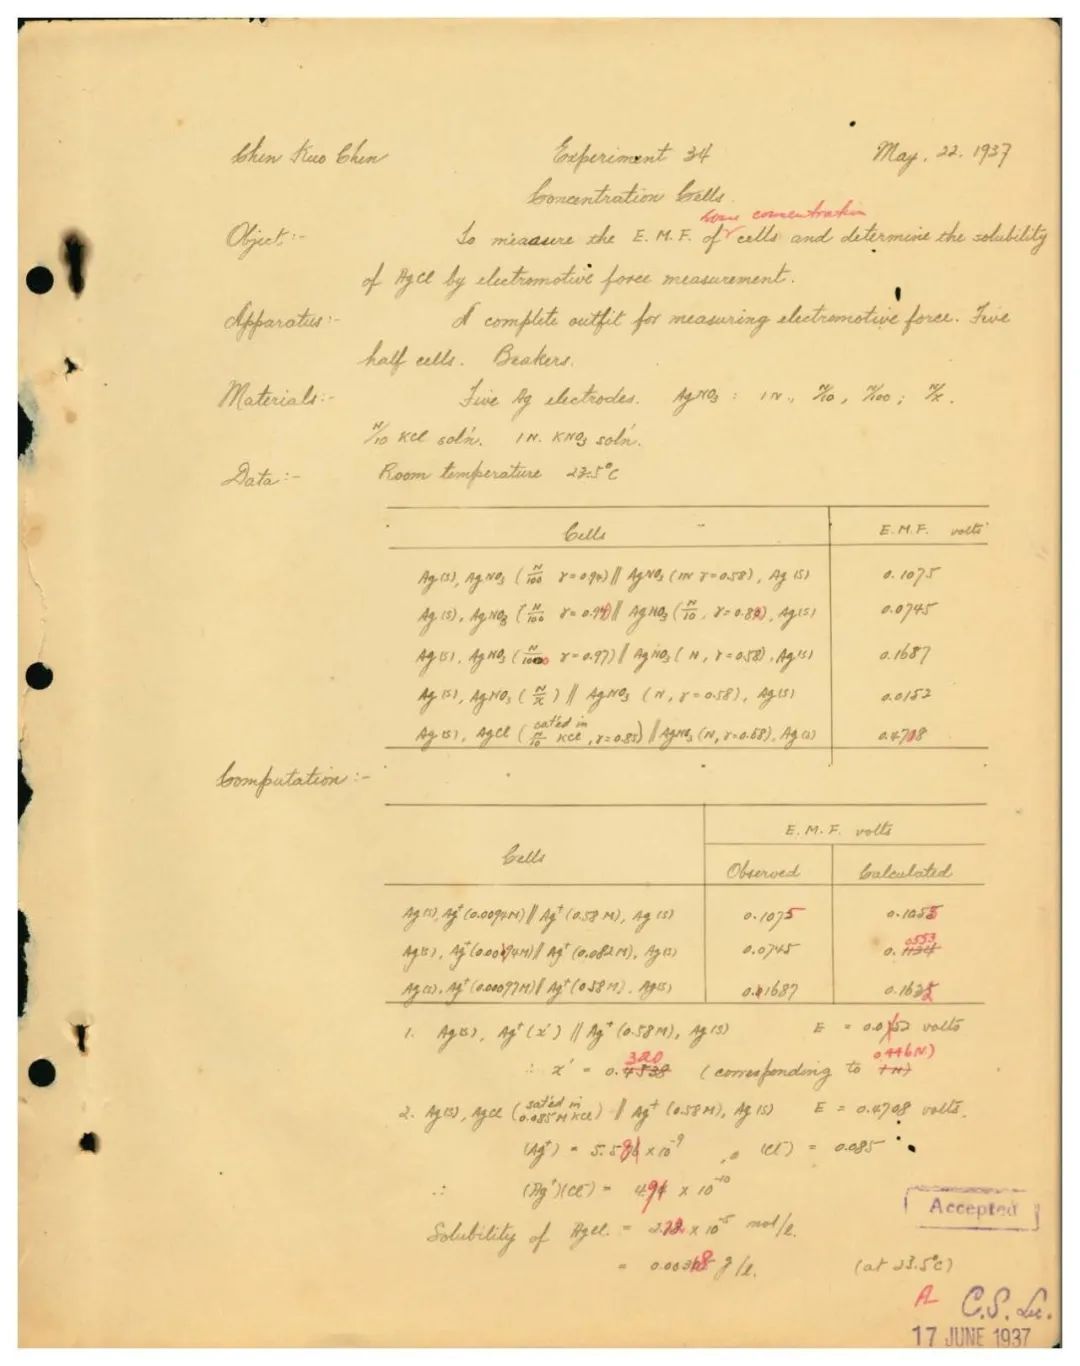 Chen Kuo Chen Experiment 34 May. 22. 1937
Concentration Cells.
some concentration
Object:- To measure the E.M.F. of cells and determine the solubility
of AgCl by electromotive force measurement.
Apparatus:- A complete outfit for measuring electromotive force. Five
half cells. Beakers.
Materials:- Five Ag electrodes. AgNO3 : 1N., N/10, N/100; N/x.
N/10 KCl sol'n. 1N. KNO3 sol'n.
Data:- Room temperature 23.5°C
Cells E.M.F. volts
Ag(s), AgNO3 (N/100 γ=0.94) || AgNO3 (1N γ=0.58), Ag(s) 0.1075
Ag(s), AgNO3 (N/100 γ=0.94) || AgNO3 (N/10, γ=0.82), Ag(s) 0.0745
Ag(s), AgNO3 (N/1000 γ=0.97) || AgNO3 (N, γ=0.58), Ag(s) 0.1687
Ag(s), AgNO3 (N/x) || AgNO3 (N, γ=0.58), Ag(s) 0.0152
Ag(s), AgCl (sat'ed in N/10 KCl, γ=0.85) || AgNO3 (N, γ=0.58), Ag(s) 0.4708
Computation:-
E.M.F. volts
Cells Observed Calculated
Ag(s), Ag+(0.0094M) || Ag+(0.58M), Ag(s) 0.1075 0.1055
0553
Ag(s), Ag+(0.0094M) || Ag+(0.082M), Ag(s) 0.0745 0.1134
Ag(s), Ag+(0.00097M) || Ag+(0.58M), Ag(s) 0.1687
1. Ag(s), Ag+(x') || Ag+(0.58M), Ag(s) E = 0.0152 volts
320 0.446N)
∴ x' = 0.4538 (corresponding to 1N)
2. Ag(s), AgCl (sat'ed in 0.085M KCl) || Ag+(0.58M), Ag(s) E = 0.4708 volts.
(Ag+) = × 10-9 , (Cl-) = 0.085
∴ (Ag+)(Cl-) = × 10-10
Solubility of AgCl. = × 10-5 mol/l.
= g/l. (at 23.5°C)
Accepted
A C.S. Lu.
17 JUNE 1937